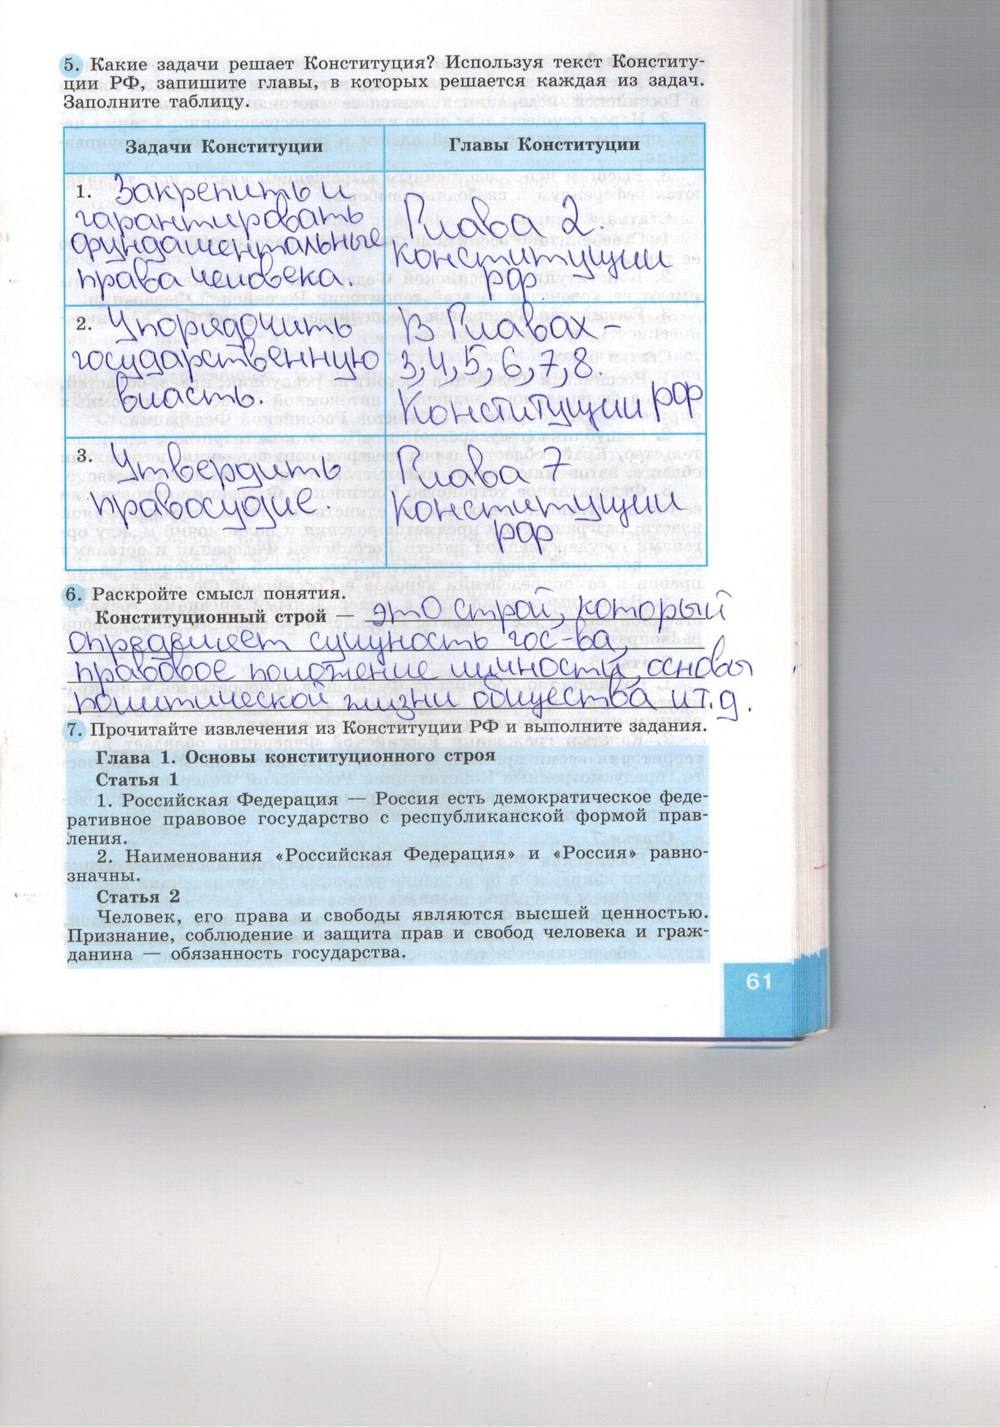 5. Какие задачи решает Конституция? Используя текст Конститу-
ции РФ, запишите главы, в которых решается каждая из задач.
Заполните таблицу.
Задачи Конституции
Главы Конституции
1. Закрепить и
гарантировать
фундаментальные
права человека.
Глава 2.
Конституции
РФ.
2. Упорядочить
государственную
власть.
В Главах -
3,4,5,6,7,8.
Конституции РФ
3. Утвердить
правосудие.
Глава 7
Конституции
РФ
6. Раскройте смысл понятия.
Конституционный строй — это строй, который
определяет сущность гос-ва,
правовое положение личности, основы
политической жизни общества и т.д.
7. Прочитайте извлечения из Конституции РФ и выполните задания.
Глава 1. Основы конституционного строя
Статья 1
1. Российская Федерация — Россия есть демократическое феде-
ративное правовое государство с республиканской формой прав-
ления.
2. Наименования «Российская Федерация» и «Россия» равно-
значны.
Статья 2
Человек, его права и свободы являются высшей ценностью.
Признание, соблюдение и защита прав и свобод человека и граж-
данина — обязанность государства.
61